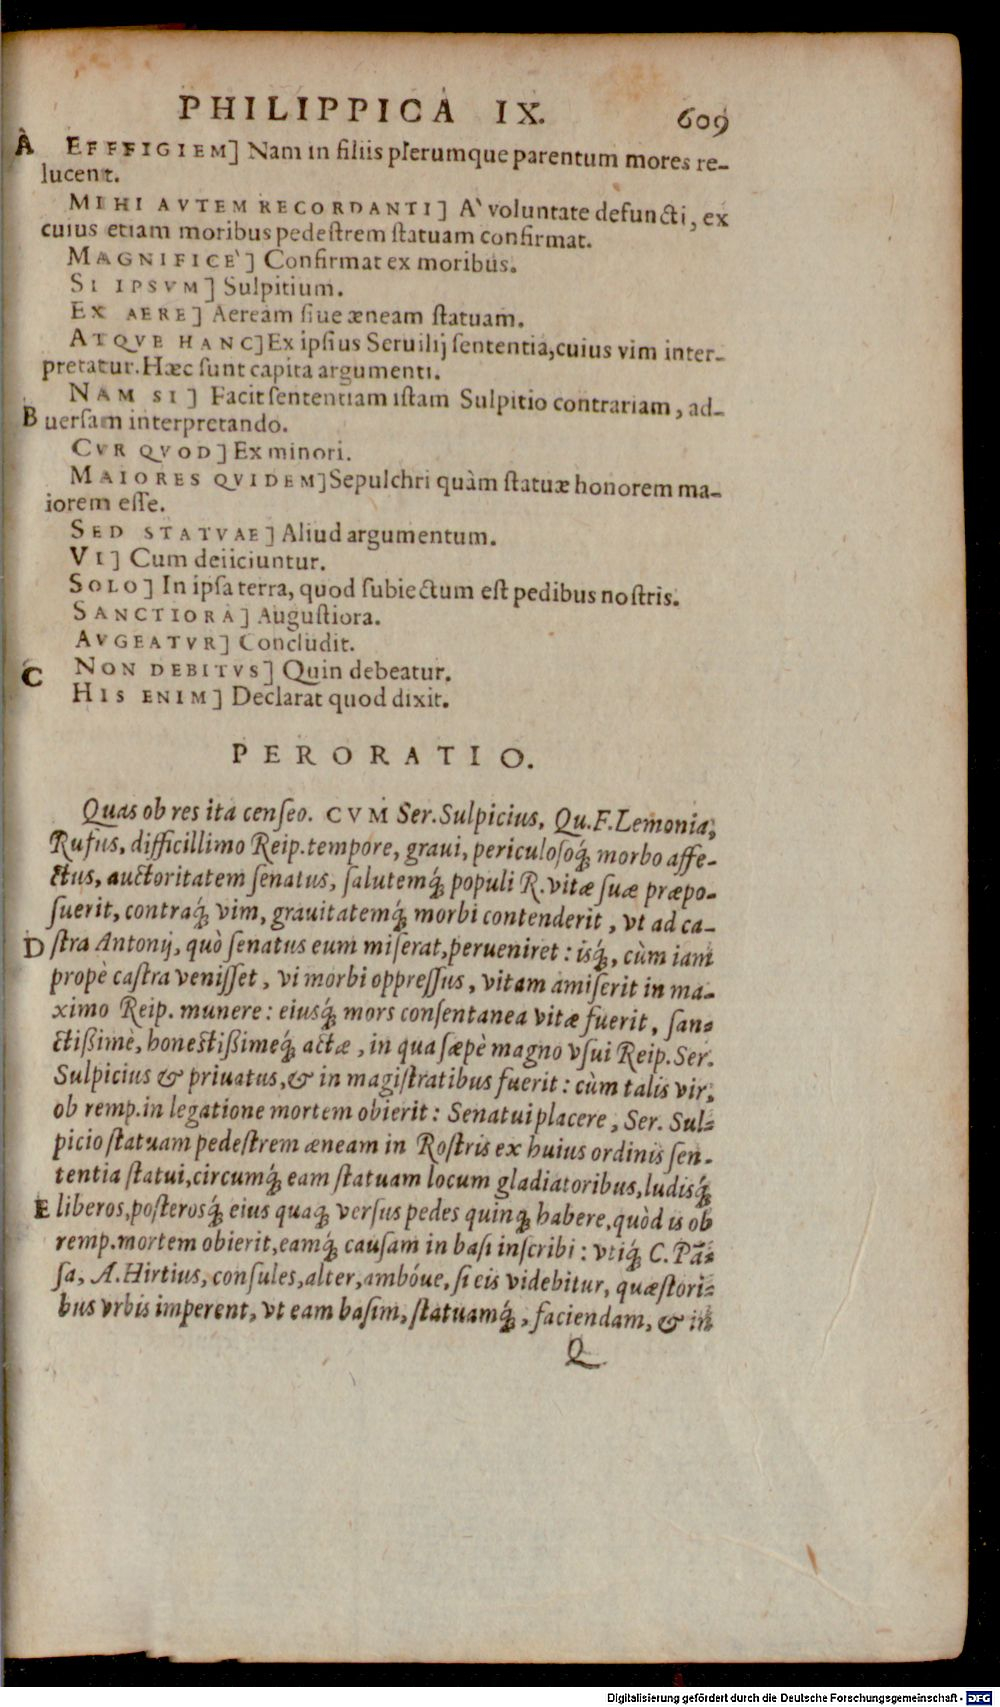 PHILIPPICA IX. 609
A EFFFIGIEM] Nam in filiis plerumque parentum mores re-
lucent.
MIHI AVTEM RECORDANTI] A` voluntate defuncti, ex
cuius etiam moribus pedeſtrem ſtatuam confirmat.
MAGNIFICE`] Confirmat ex moribus.
SI IPSVM] Sulpitium.
EX AERE] Aeream ſiue æneam ſtatuam.
ATQVE HANC] Ex ipſius Seruilij ſententia, cuius vim inter-
pretatur. Hæc ſunt capita argumenti.
NAM SI] Facit ſententiam iſtam Sulpitio contrariam, ad-
B uerſam interpretando.
CVR QVOD] Ex minori.
MAIORES QVIDEM] Sepulchri quàm ſtatuæ honorem ma-
iorem eſſe.
SED STATVAE] Aliud argumentum.
VI] Cum deiiciuntur.
SOLO] In ipſa terra, quod ſubiectum eſt pedibus noſtris.
SANCTIORA] Auguſtiora.
AVGEATVR] Concludit.
C NON DEBITVS] Quin debeatur.
HIS ENIM] Declarat quod dixit.
PERORATIO.
Quas ob res ita cenſeo. CVM Ser. Sulpicius, Qu. F. Lemonia,
Rufus, difficillimo Reip. tempore, graui, periculoſoq́; morbo affe-
ctus, auctoritatem ſenatus, ſalutemq́; populi R. vitæ ſuæ præpo-
ſuerit, contraq́; vim, grauitatemq́; morbi contenderit, vt ad ca-
D ſtra Antonij, quò ſenatus eum miſerat, perueniret: iſq́;, cùm iam
propè caſtra veniſſet, vi morbi oppreſſus, vitam amiſerit in ma-
ximo Reip. munere: eiusq́; mors conſentanea vitæ fuerit, ſan-
ctißimè, honeſtißimeq́; actæ, in qua ſæpè magno vſui Reip. Ser.
Sulpicius & priuatus, & in magiſtratibus fuerit: cùm talis vir,
ob remp. in legatione mortem obierit: Senatui placere, Ser. Sul-
picio ſtatuam pedeſtrem æneam in Roſtris ex huius ordinis ſen-
tentia ſtatui, circumq́; eam ſtatuam locum gladiatoribus, ludisq́;
E liberos, poſterosq́; eius quaq́; verſus pedes quinq; habere, quòd is ob
remp. mortem obierit, eamq́; cauſam in baſi inſcribi: vtiq́; C. Pā-
ſa, A. Hirtius, conſules, alter, ambóue, ſi eis videbitur, quæſtori-
bus vrbis imperent, vt eam baſim, ſtatuamq́;, faciendam, & in
Q
Digitalisierung gefördert durch die Deutsche Forschungsgemeinschaft - DFG